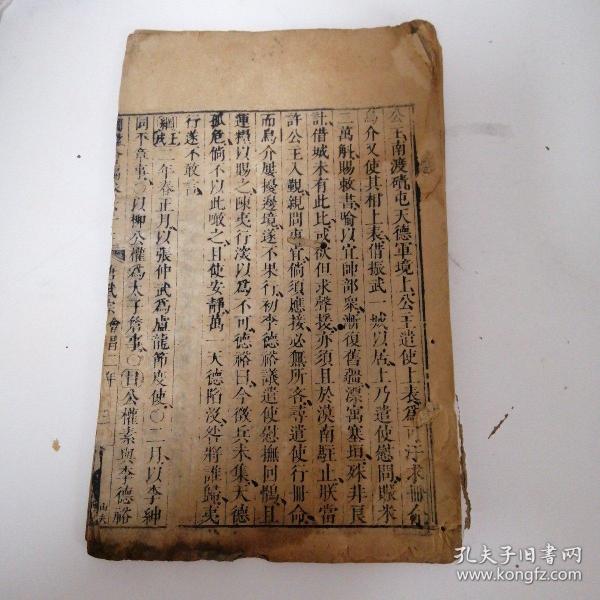 公主南渡磧屯天德軍境上公主遣使上表為可汗求冊命
烏介又使其相上表借振武一城以居上乃遣使慰問賑米
二萬斛賜敕書喻以宜帥部衆漸復舊疆漂寓塞垣殊非良
計借城未有此比或欲但求聲援亦須且於漠南駐止朕當
許公主入覲親問事宜倘須應接必無所吝尋遣使行冊命
而烏介屢擾邊境遂不果行初李德裕議遣使慰撫回鶻且
運糧以賜之陳夷行淡以為不可德裕曰今徵兵未集天德
孤危倘不以此噉之且使安靜萬一天德陷沒咎將誰歸夷
行遂不敢言
綱壬戌二年春正月以張仲武為盧龍節度使○二月以李紳
同平章事○以柳公權為太子詹事○目公權素與李德裕
唐武宗會昌二年 三
孔夫子旧书网
www.kongfz.com